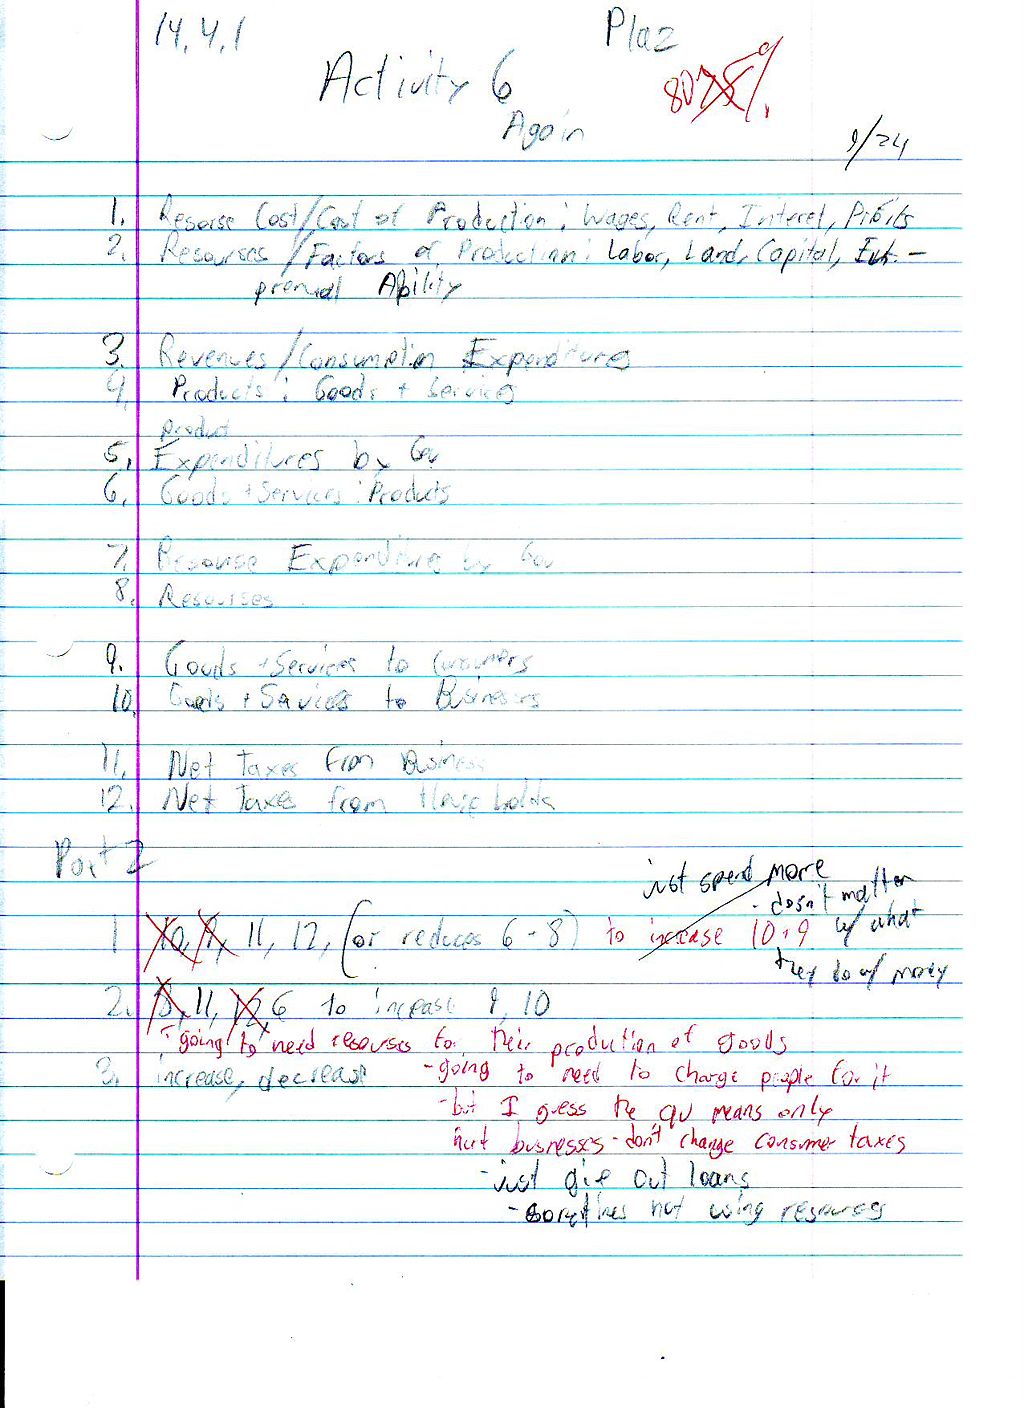 14.4.1
Plaz
Activity 6
80%
Again
9/24
1. Resorse Cost/Cost of Production: Wages, Rent, Interet, Profits
2. Resourses/Factors of Production: Labor, Land, Capital, Ent.-
prenual Ability
3. Revenues/Consumption Expenditures
4. Products: Goods + Services
product
5. Expenditures by Gov
6. Goods + Services: Products
7. Resourse Expenditure by Gov
8. Resourses
9. Goods + Services to Consumers
10. Goods + Services to Businesses
11. Net Taxes From Business
12. Net Taxes from Households
Part 2
just spend more
- dosn't matter
1 10, 9, 11, 12, (or reduces 6-8) to increase 10+9 w/ what
they do w/ money
2. 11, 12, 6 to increase 9, 10
- going to need resourses for their production of goods
3. increase, decrease - going to need to charge people for it
- but I guess the qu means only
hurt businesses - don't change consumer taxes
- just give out loans
- sometimes not using resources